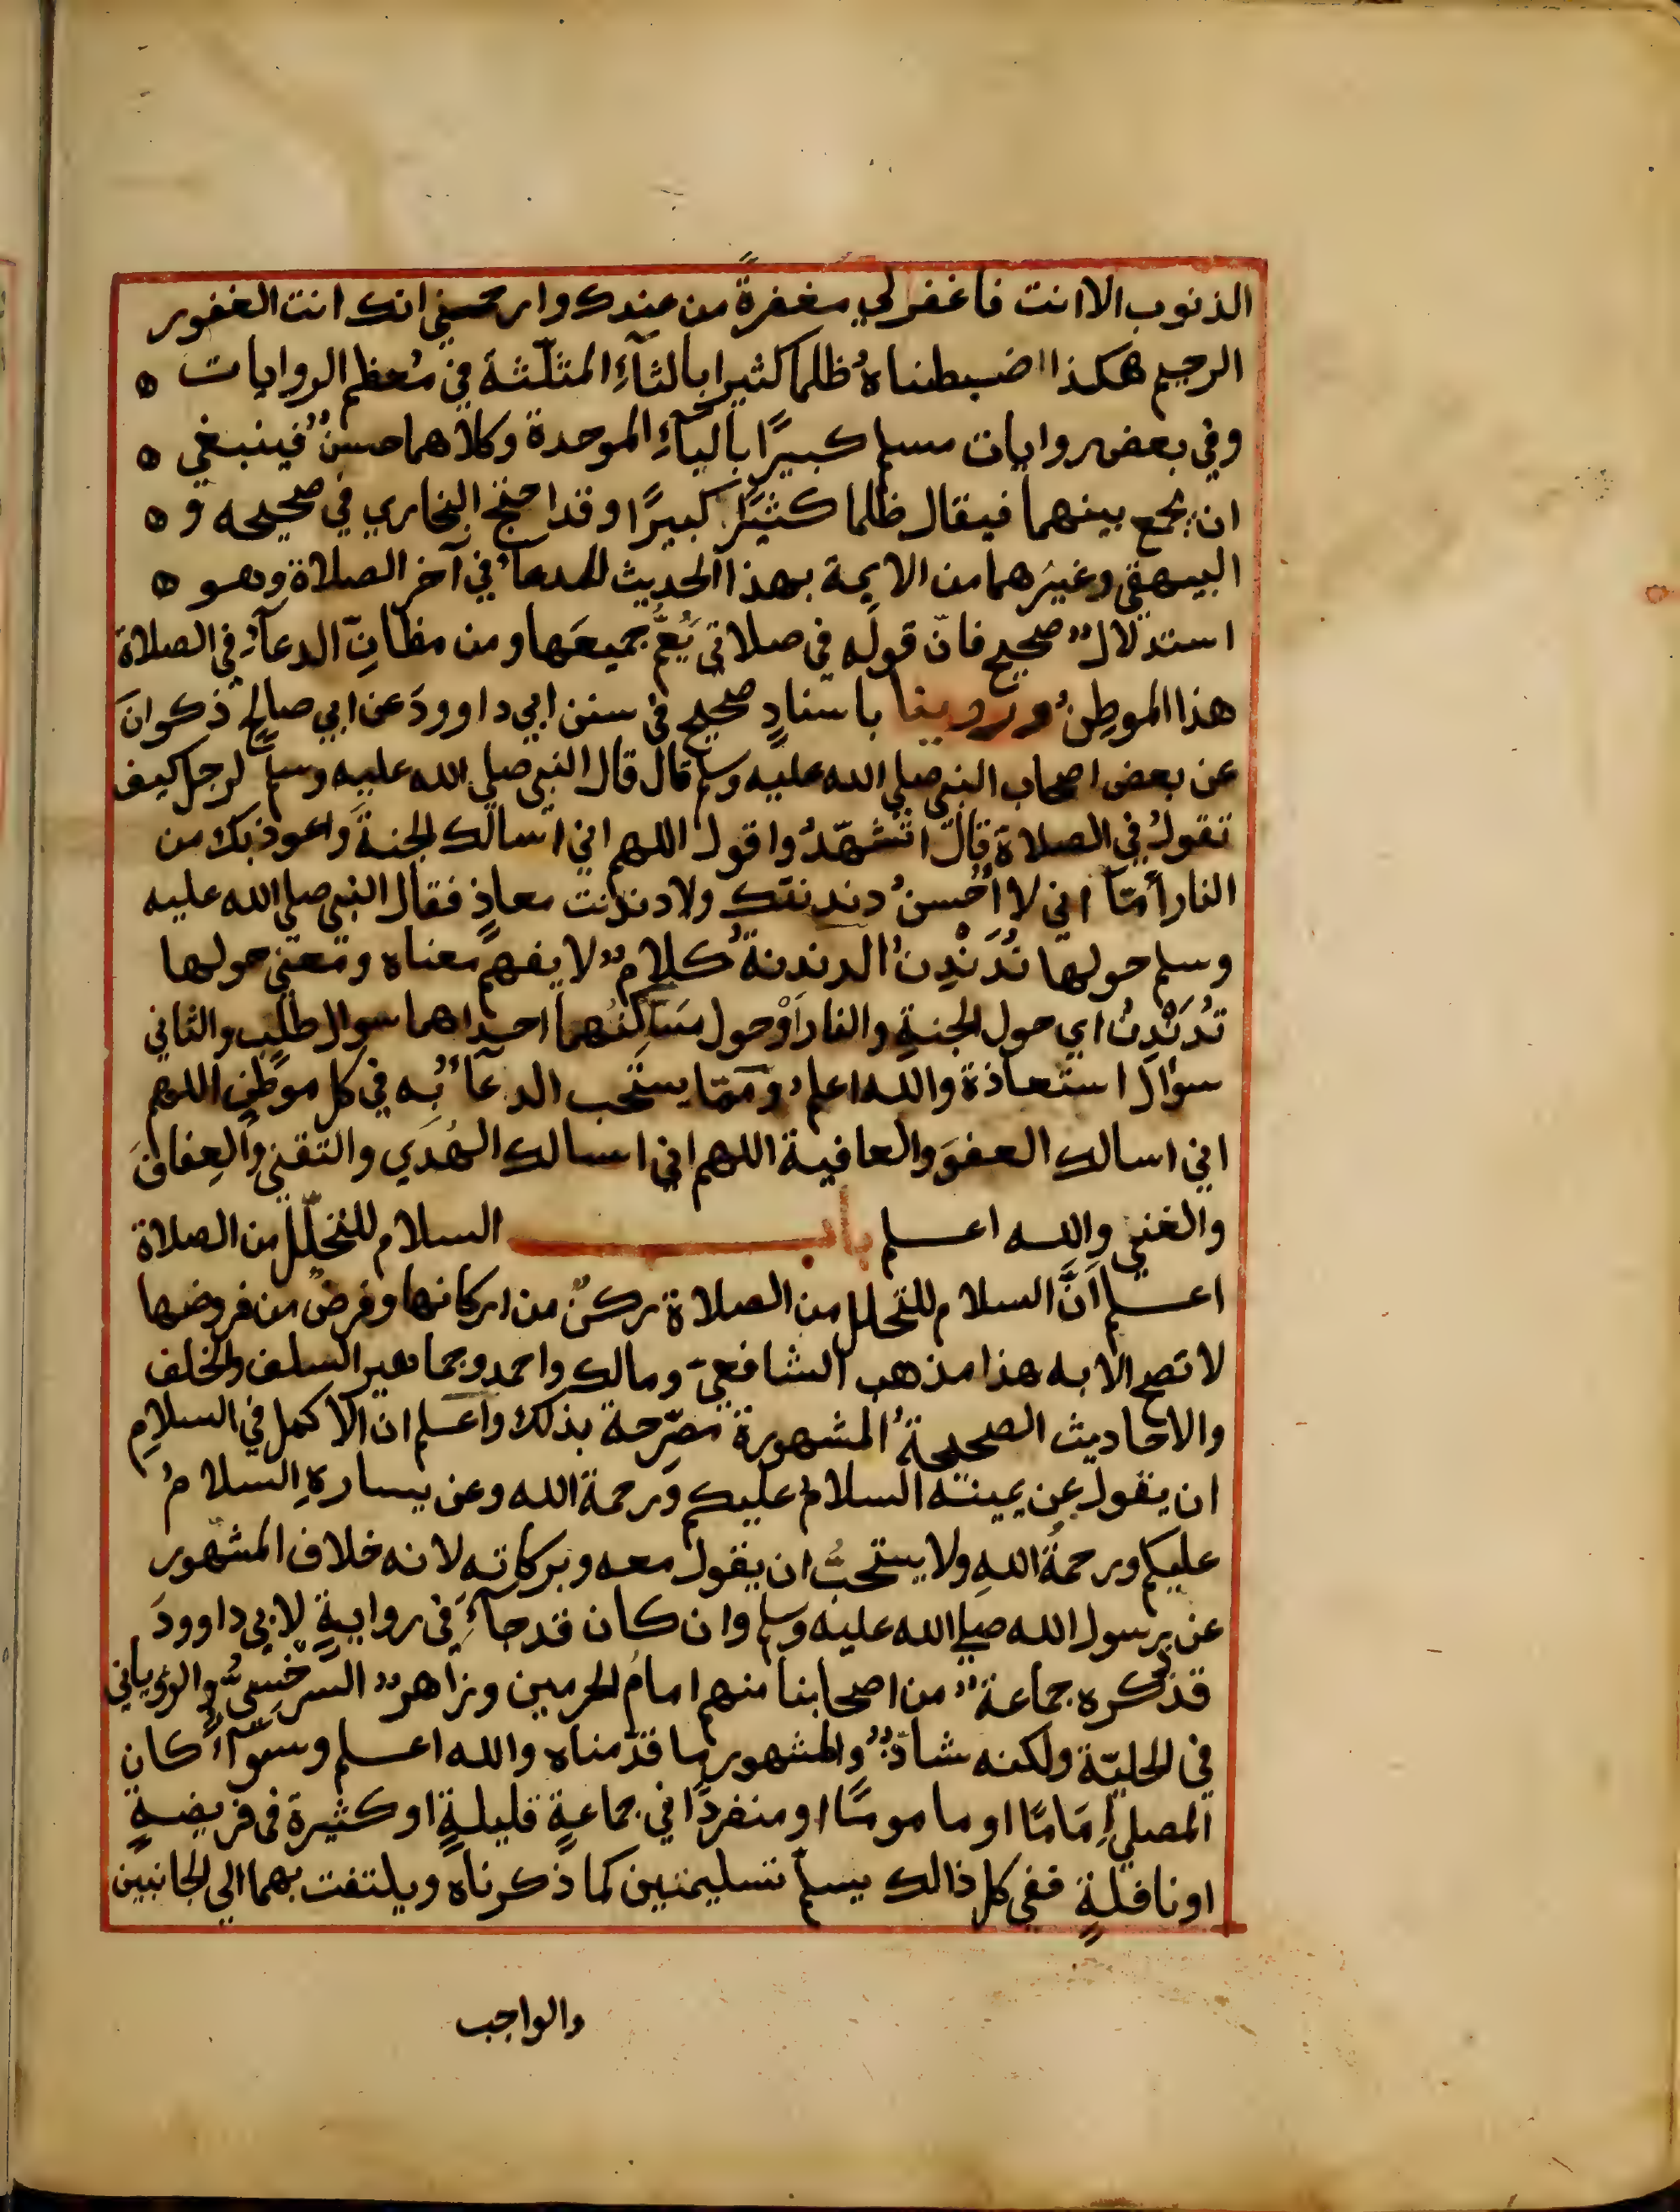 الذنوب الا انت فاغفر لي مغفرةً من عندك وارحمني انك انت الغفور
الرحيم هكذا ضبطناهُ ظلما كثيرا بالثآءِ المثلّثة في مُعظم الروايات ه
وفي بعض روايات مسلم كبيرًا بالبآءِ الموحدة وكلاهما حسنٌ فينبغي ه
ان يجمع بينهما فيقال ظلما كثيرًا كبيرًا وقد احتج البخاري في صحيحه و ه
البيهقي وغيرهما من الايمة بهذا الحديث للدعآءِ في آخر الصلاة وهو ه
استدلالٌ صحيح فانّ قولَه في صلاتي يَعُمُّ جميعَها ومن مظانّ الدعآءِ في الصلاة
هذا الموطِنُ وروينا باسنادٍ صحيح في سنن ابي داوودَ عن ابي صالح ذكوانَ
عن بعض اصحاب النبي صلي الله عليه وسلم قال قال النبي صلي الله عليه وسلم لرجل كيف
تقولُ في الصلاة قال اتشهّدُ واقول اللهم اني اسالك الجنةَ واعوذ بك من
النار أمّا اني لا اُحْسنُ دندنتك ولا دندنت معاذٍ فقال النبي صلي الله عليه
وسلم حولها نُدَنْدِنُ الدندنةُ كلامٌ لا يفهم معناه ومعني حولها
نُدَنْدِنُ اي حول الجنةِ والنار اَوْ حول مَسَالتهما احداهما سوال طلب والثاني
سوْال استعاذة والله اعلم ومما يستحب الدعآءُ به في كل موطن اللهم
اني اسالك العفوَ والعافية اللهم اني اسالك الهُدَي والتقني والعِفافَ
والغني والله اعلم باب السلام للتحلّل من الصلاة
اعلم اَنَّ السلام للتحلل من الصلاة ركنٌ من اركانها وفرضٌ من فروضها
لا تصح الا به هذا مذهب الشافعيّ ومالك واحمد وجماهير السلف والخلف
والاحاديث الصحيحةُ المشهورة مصرّحة بذلك واعلم ان الاكمل في السلامِ
ان يقول عن يمينه السلام عليكم ورحمة الله وعن يسارهِ السلامُ
عليكم ورحمةُ اللهِ ولا يستحبُّ ان يقول معه وبركاته لانه خلاف المشهور
عن رسول الله صلي الله عليه وسلم وان كان قد جآءَ في روايةٍ لابي داوودَ
قد ذكره جماعةٌ من اصحابنا منهم امامُ الحرمين وزاهرٌ السرخسيُّ والرؤياني
في الحليّة ولكنه شاذٌّ والمشهور ما قدّمناه والله اعلم وسوآءٌ كان
المصلي اِمَامًا او ماموسًا او منفردًا في جماعةٍ قليلةٍ او كثيرة في فريضةٍ
او نافلةٍ ففي كل ذالك يسلم تسليمتين كما ذكرناه ويلتفت بهما الي الجانبين
والواجب